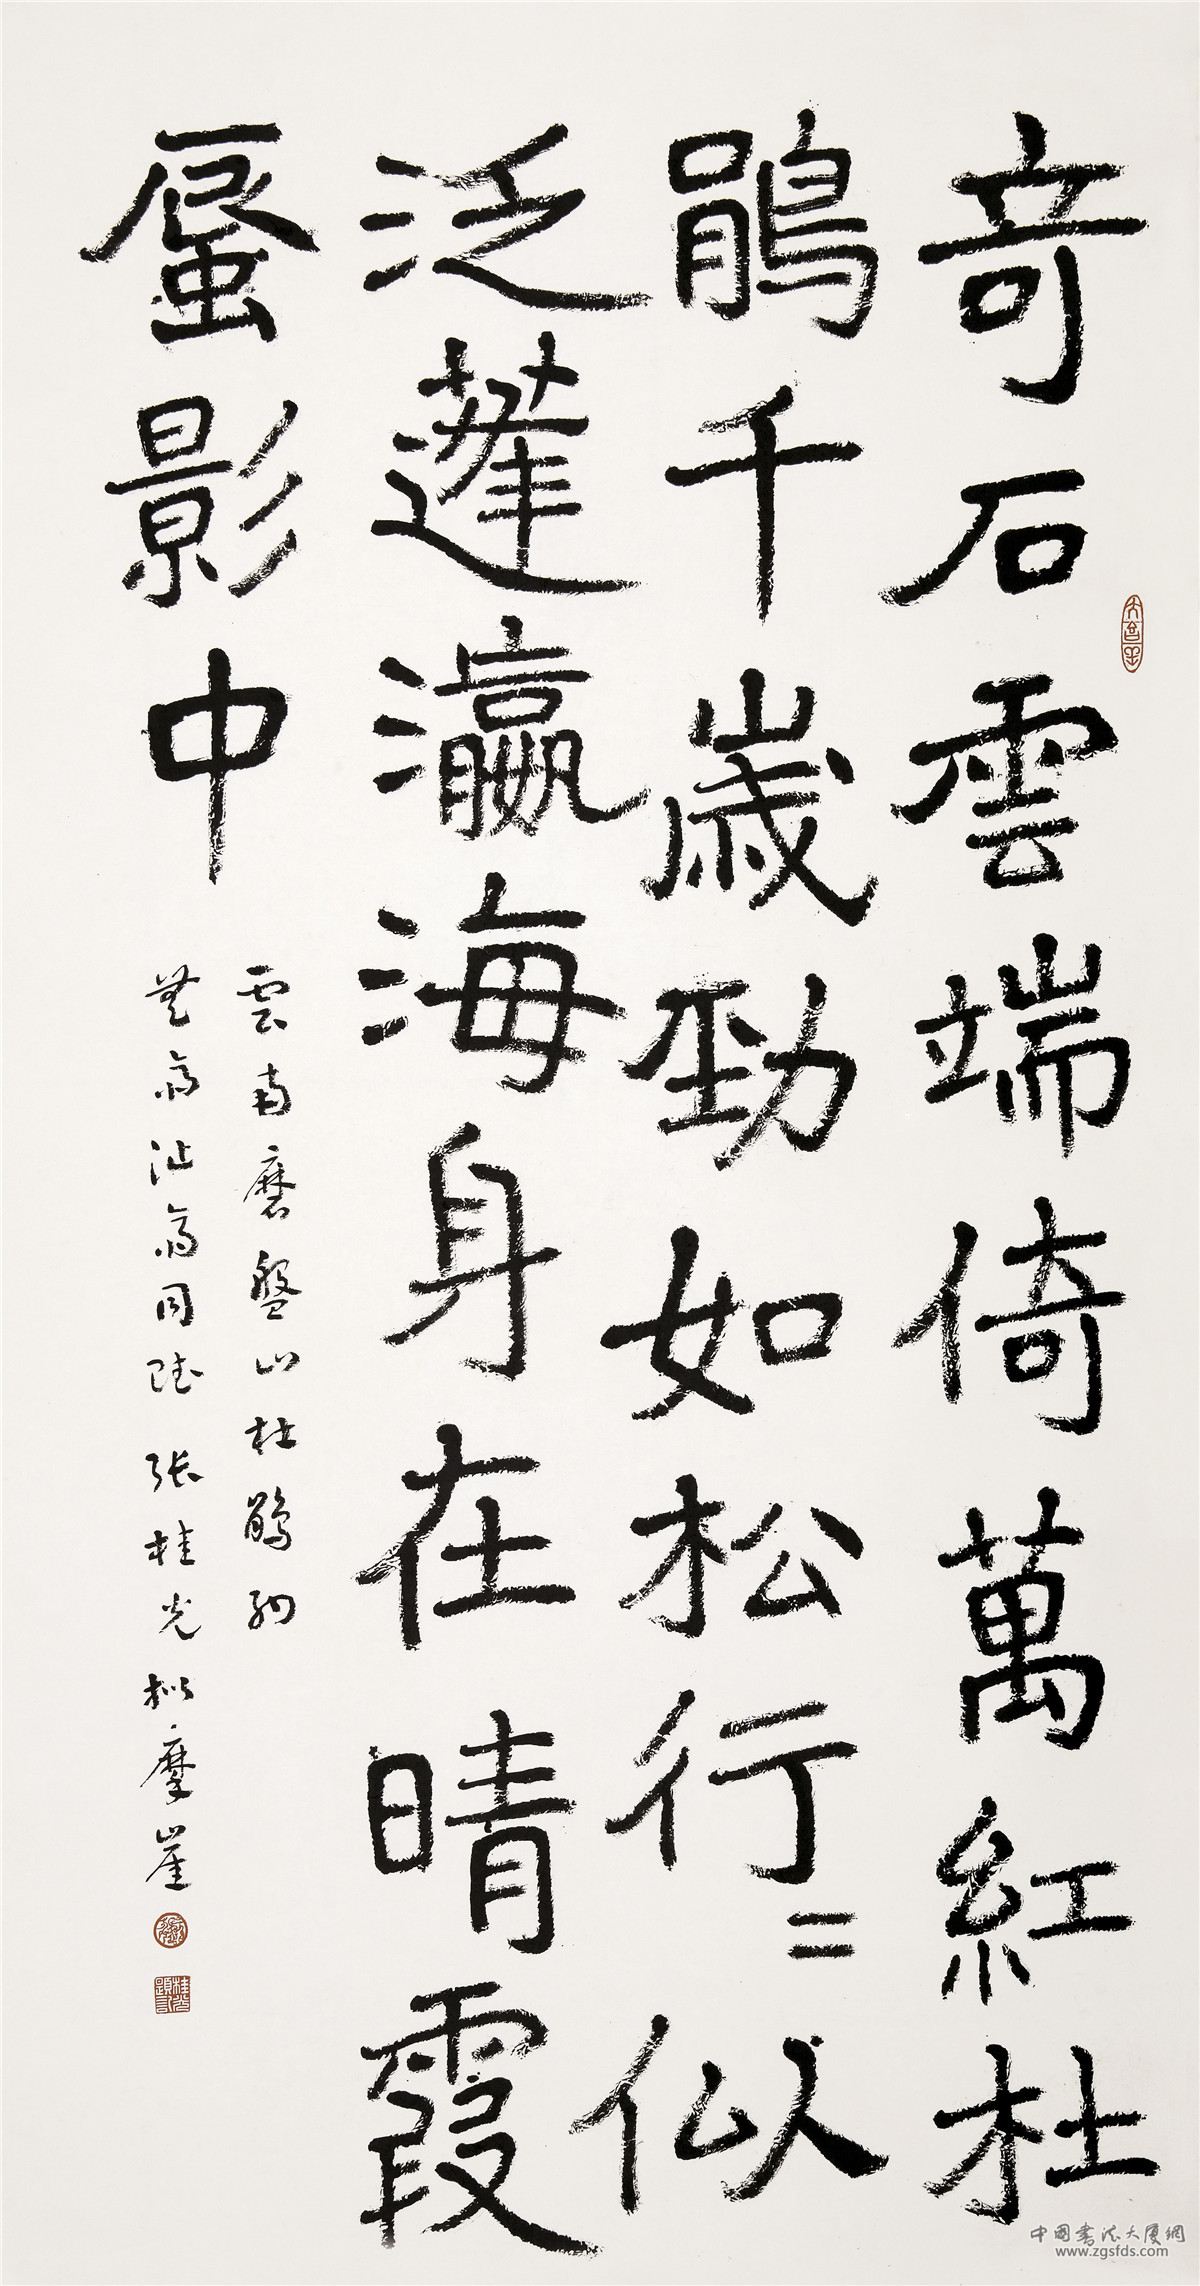 奇石雲端倚萬紅杜
鵑千歲勁如松行〻似
泛蓬瀛海身在晴霞
蜃影中
雲南磨盤山杜鵑
無齋沚齋同賦 張桂光擬摩崖
中國書法大厦網
www.zgsfds.com